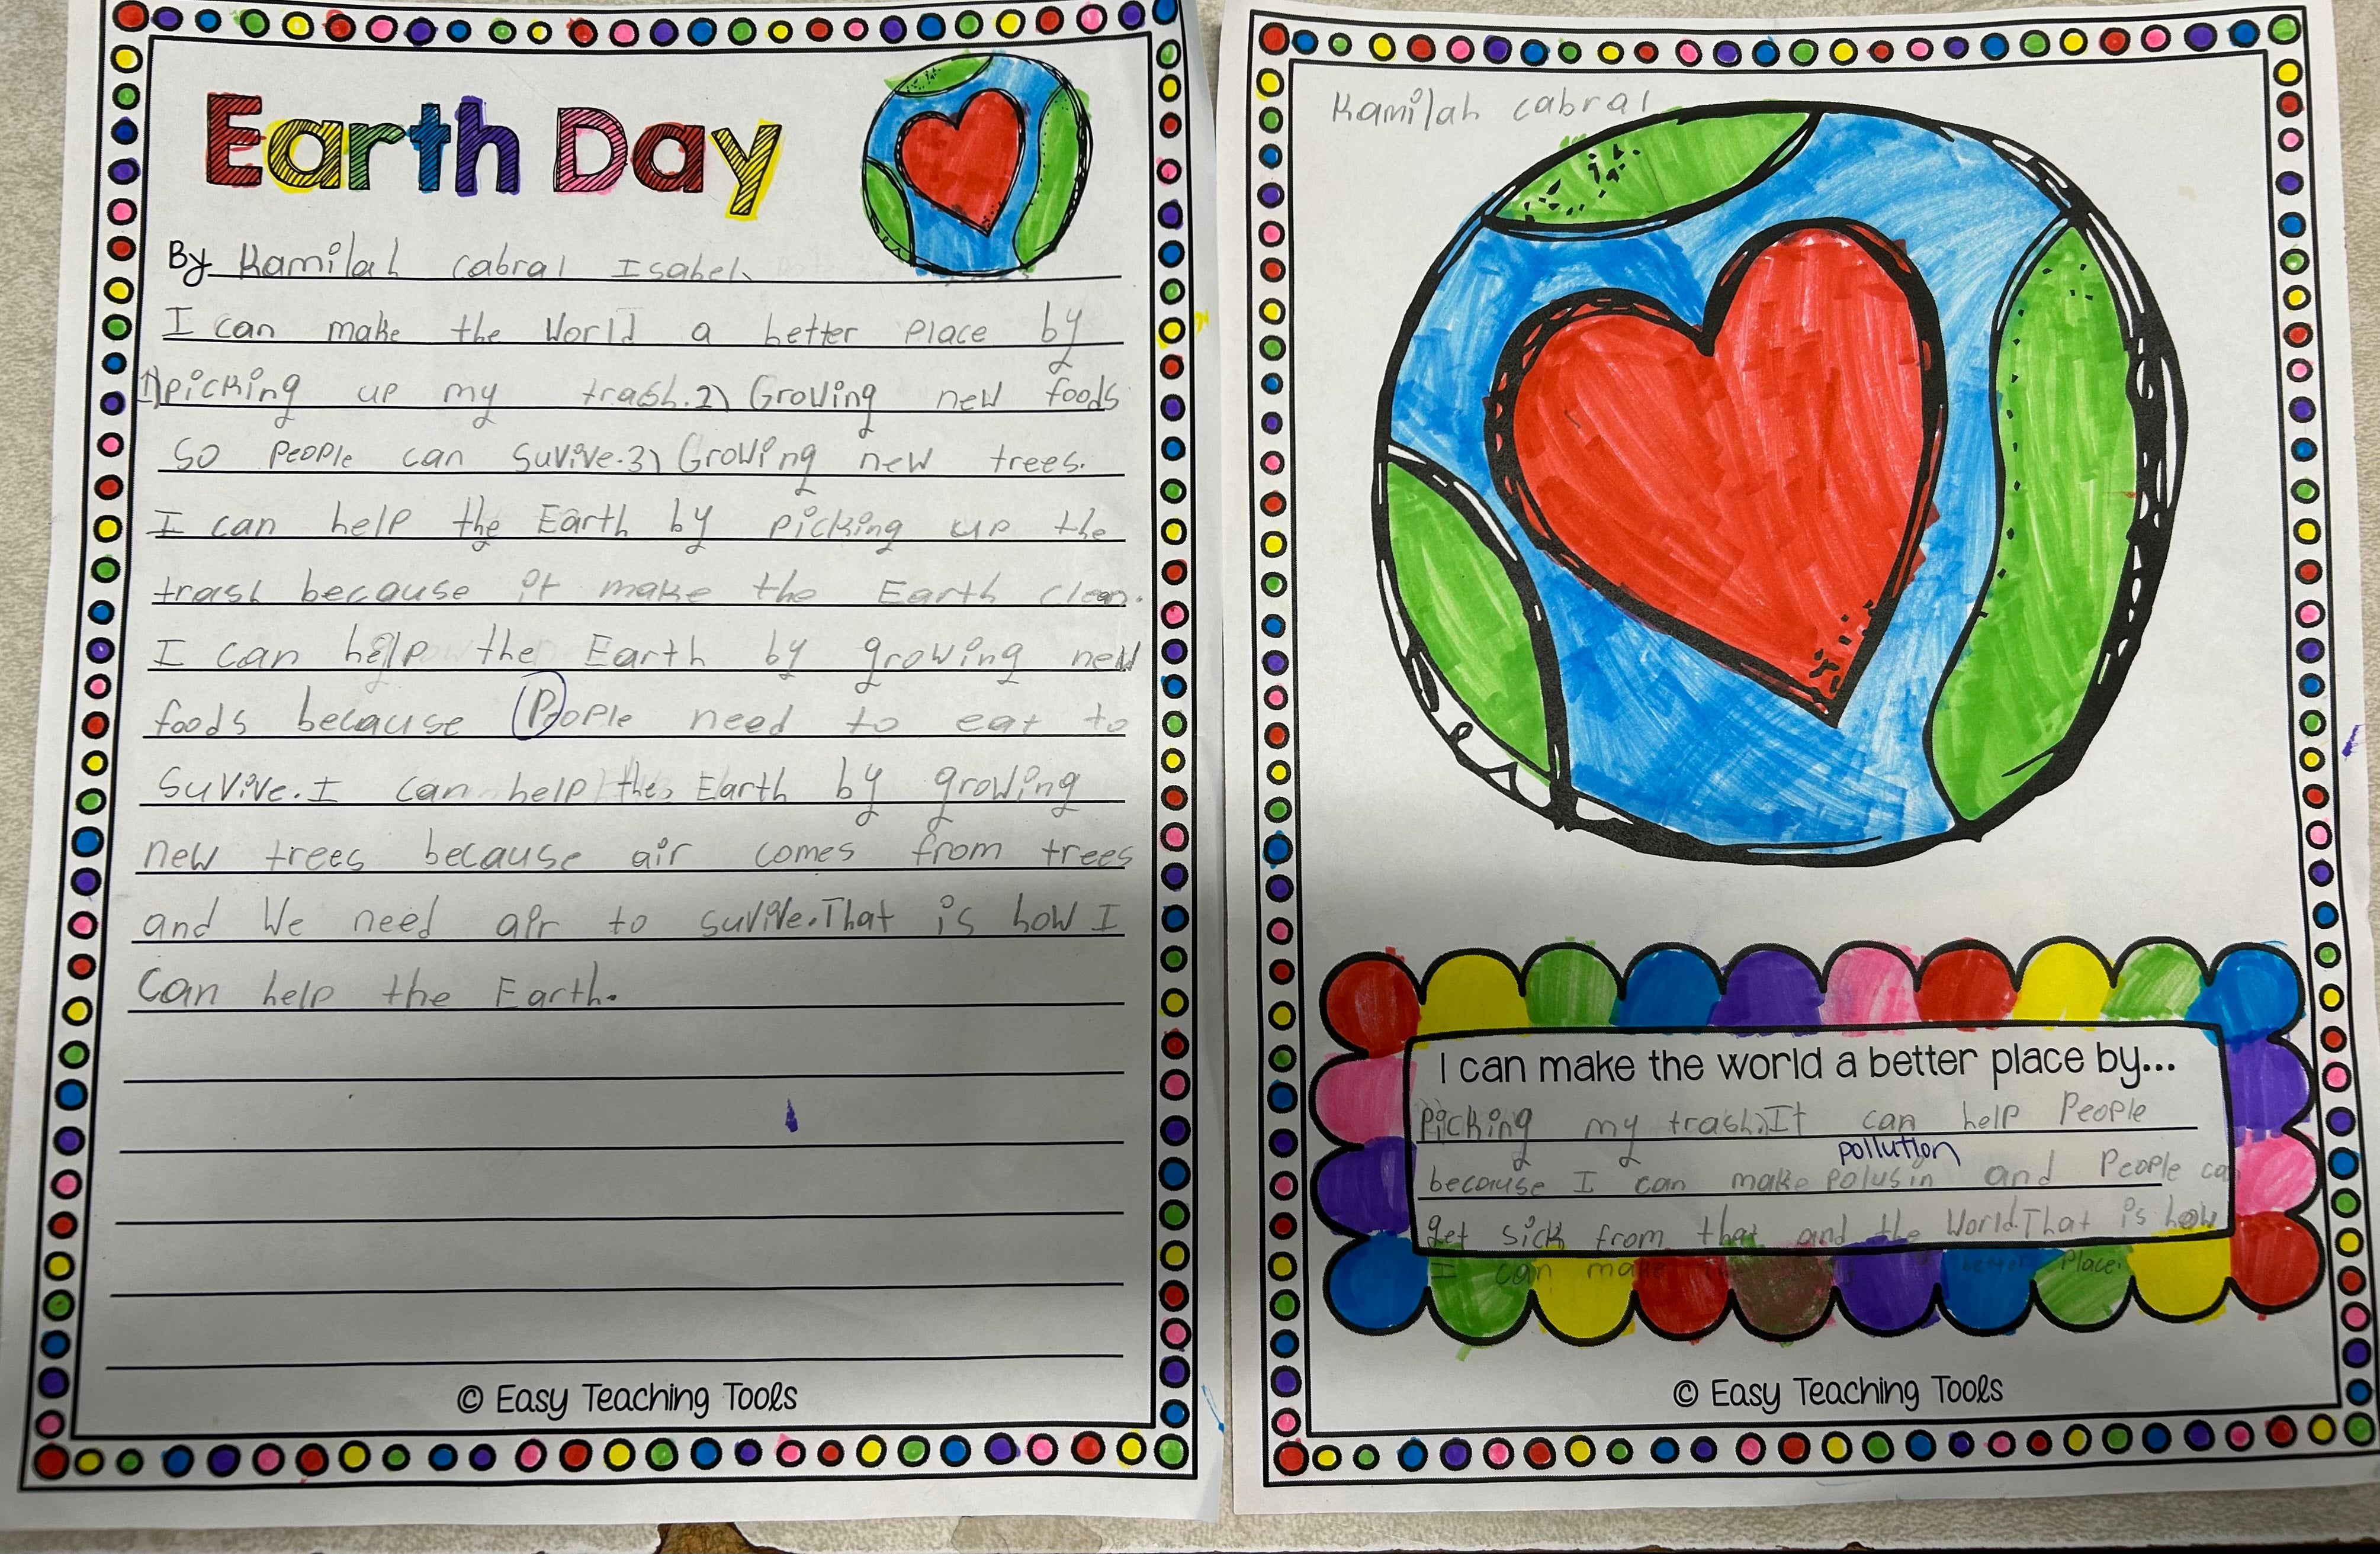 Earth Day
By Kamilah cabral Isabel
I can make the World a better place by
1) picking up my trash. 2) Growing new foods
so people can suvive. 3) Growing new trees.
I can help the Earth by picking up the
trash because it make the Earth clean.
I can help the Earth by growing new
foods because People need to eat to
suvive. I can help the Earth by growing
new trees because air comes from trees
and We need air to suvive. That is how I
can help the Earth.
© Easy Teaching Tools
Kamilah cabral
I can make the world a better place by...
Picking my trash. It can help People
pollution
because I can make polusin and People can
get sick from that and the World. That is how
I can make the better Place.
© Easy Teaching Tools